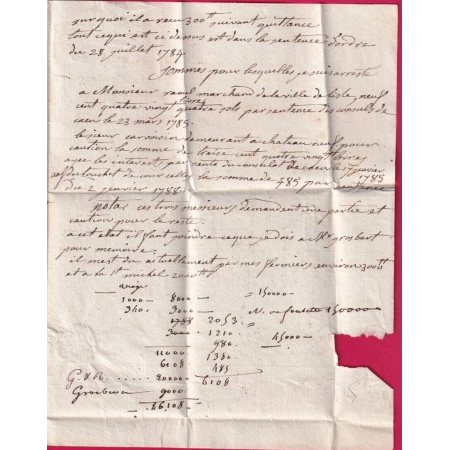 sur quoi il a recu 300# suivant quittance
tout ce qui est ci dessus est dans la sentence d'ordre
du 28 juillet 1784
Sommes pour lesquelles je suis arreste
a Monsieur raoul marchand de la ville de lisle, neuf
cent quatre vingt livres quatre sols par sentence des consuls de
caen le 23 mars 1785
le sieur demeurant a chateau neuf pour
caution la somme de traise cent quatre vingt livres
avec les interets par sentence du consulat de 7 janvier 1785
du touchet de courcelles la somme de 485 par sentence
du 2 janvier 1788
nota ces trois messieurs demandent une partie et
caution pour le reste
a cet etat il faut joindre ce que je dois a Mr grosbert
pour memoire
il m'est du actuellement par mes fermiers environ 3000#
et a la st michel 2000#
1000 — 8000 — = 150000
340 — 3000 — 150000
1788 2053
3000 1210 = 45000
980
11000 1380
6108 485
20000 6108
9000
46108